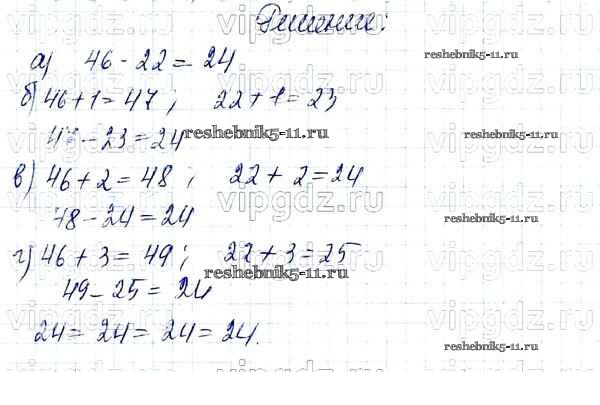 Решение:
а) 46 - 22 = 24
б) 46 + 1 = 47 ; 22 + 1 = 23
47 - 23 = 24
в) 46 + 2 = 48 ; 22 + 2 = 24
48 - 24 = 24
г) 46 + 3 = 49 ; 22 + 3 = 25
49 - 25 = 24
24 = 24 = 24 = 24.
vipgdz.ru
reshebnik5-11.ru
reshebnik5-11.ru
reshebnik5-11.ru
reshebnik5-11.ru
reshebnik5-11.ru
reshebnik5-11.ru